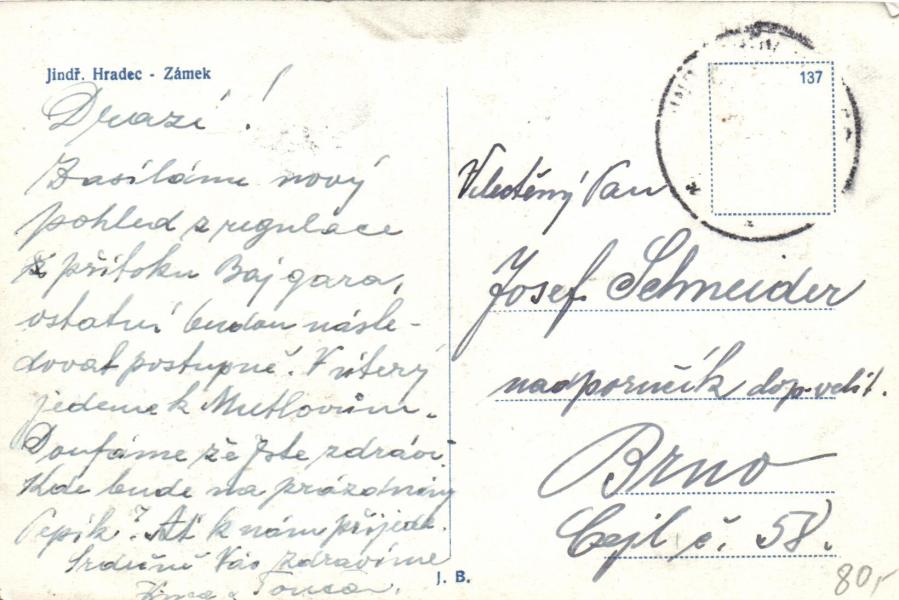 Jindř. Hradec - Zámek
137
Drazí!
Zasíláme nový
pohled z regulace
přítoku Bajgara,
ostatní budou násle-
dovat postupně. V úterý
jedeme k Mutlovům.
Doufáme že Jste zdrávi.
Kde bude na prázdniny
Pepík? Ať k nám přijede.
Srdečně Vás zdravíme
Velectěný Pan
Josef Schneider
nadporučík dop. velit.
Brno
Cejl č. 58.
J. B.
80,-